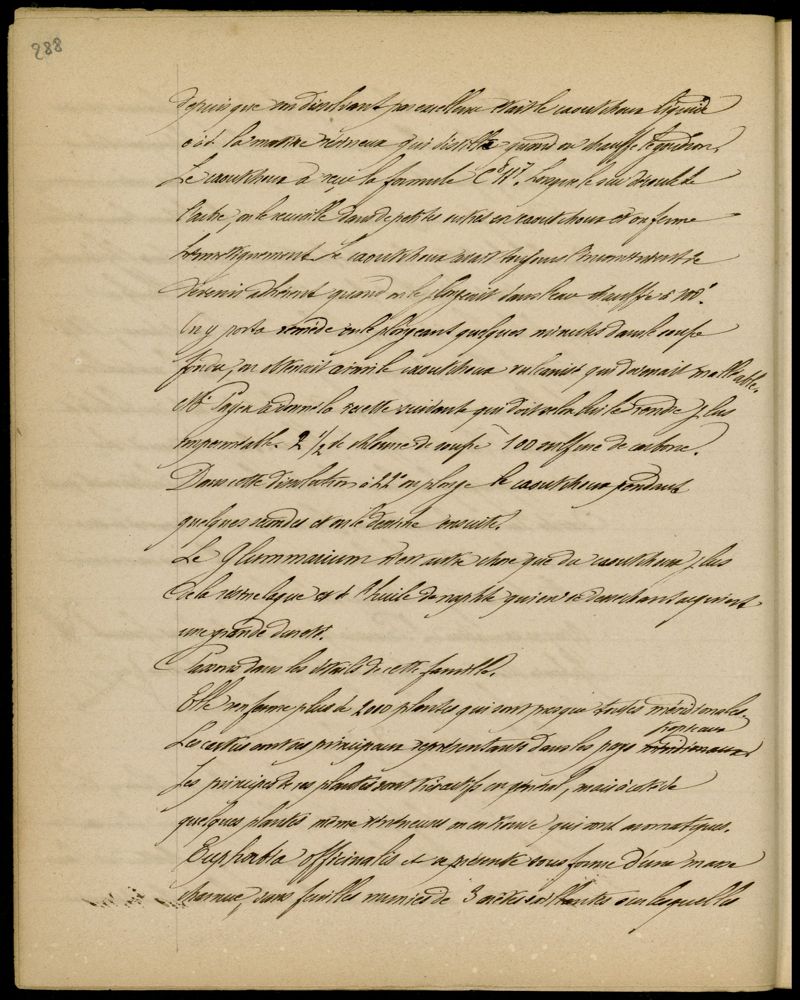 288
depuis que un dissolvant par excellence était le caoutchouc liquide
c à d la matière résineuse qui distille quand on chauffe le goudron.
Le caoutchouc a reçu la formule C⁸H⁷. Lorsque le suc découle de
l'arbre, on le recueille dans de petites outres en caoutchouc et on ferme
hermétiquement. Le caoutchouc avait toujours l'inconvénient de
devenir adhérent quand on le plongeait dans l'eau chauffée à 100°.
On y porta remède en le plongeant quelques minutes dans le soufre
fondu, on obtenait ainsi le caoutchouc vulcanisé qui devenait malléable.
Mr Payen a donné la recette suivante qui doit selon lui le rendre plus
imperméable. 2 1/2 de chlorure de soufre 100 sulfure de carbone.
Dans cette dissolution à 22° on plonge le caoutchouc pendant
quelques secondes et on le dessine ensuite.
Le n'est autre chose que du caoutchouc plus
de la résine laque et de l'huile de naphte qui en se desséchant acquiert
une grande dureté.
Passons dans les détails de cette famille.
Elle renferme plus de 2000 plantes qui sont presque toutes méridionales.
tropicaux
Les cactus sont ses principaux représentants dans les pays méridionaux
Les principes de ces plantes sont très actifs en général, mais à côté de
quelques plantes même vénéneuses on en trouve qui sont aromatiques.
Euphorbia officinalis et se présente sous forme d'une masse
charnue, sans feuilles munies de 3 arêtes saillantes sur lesquelles